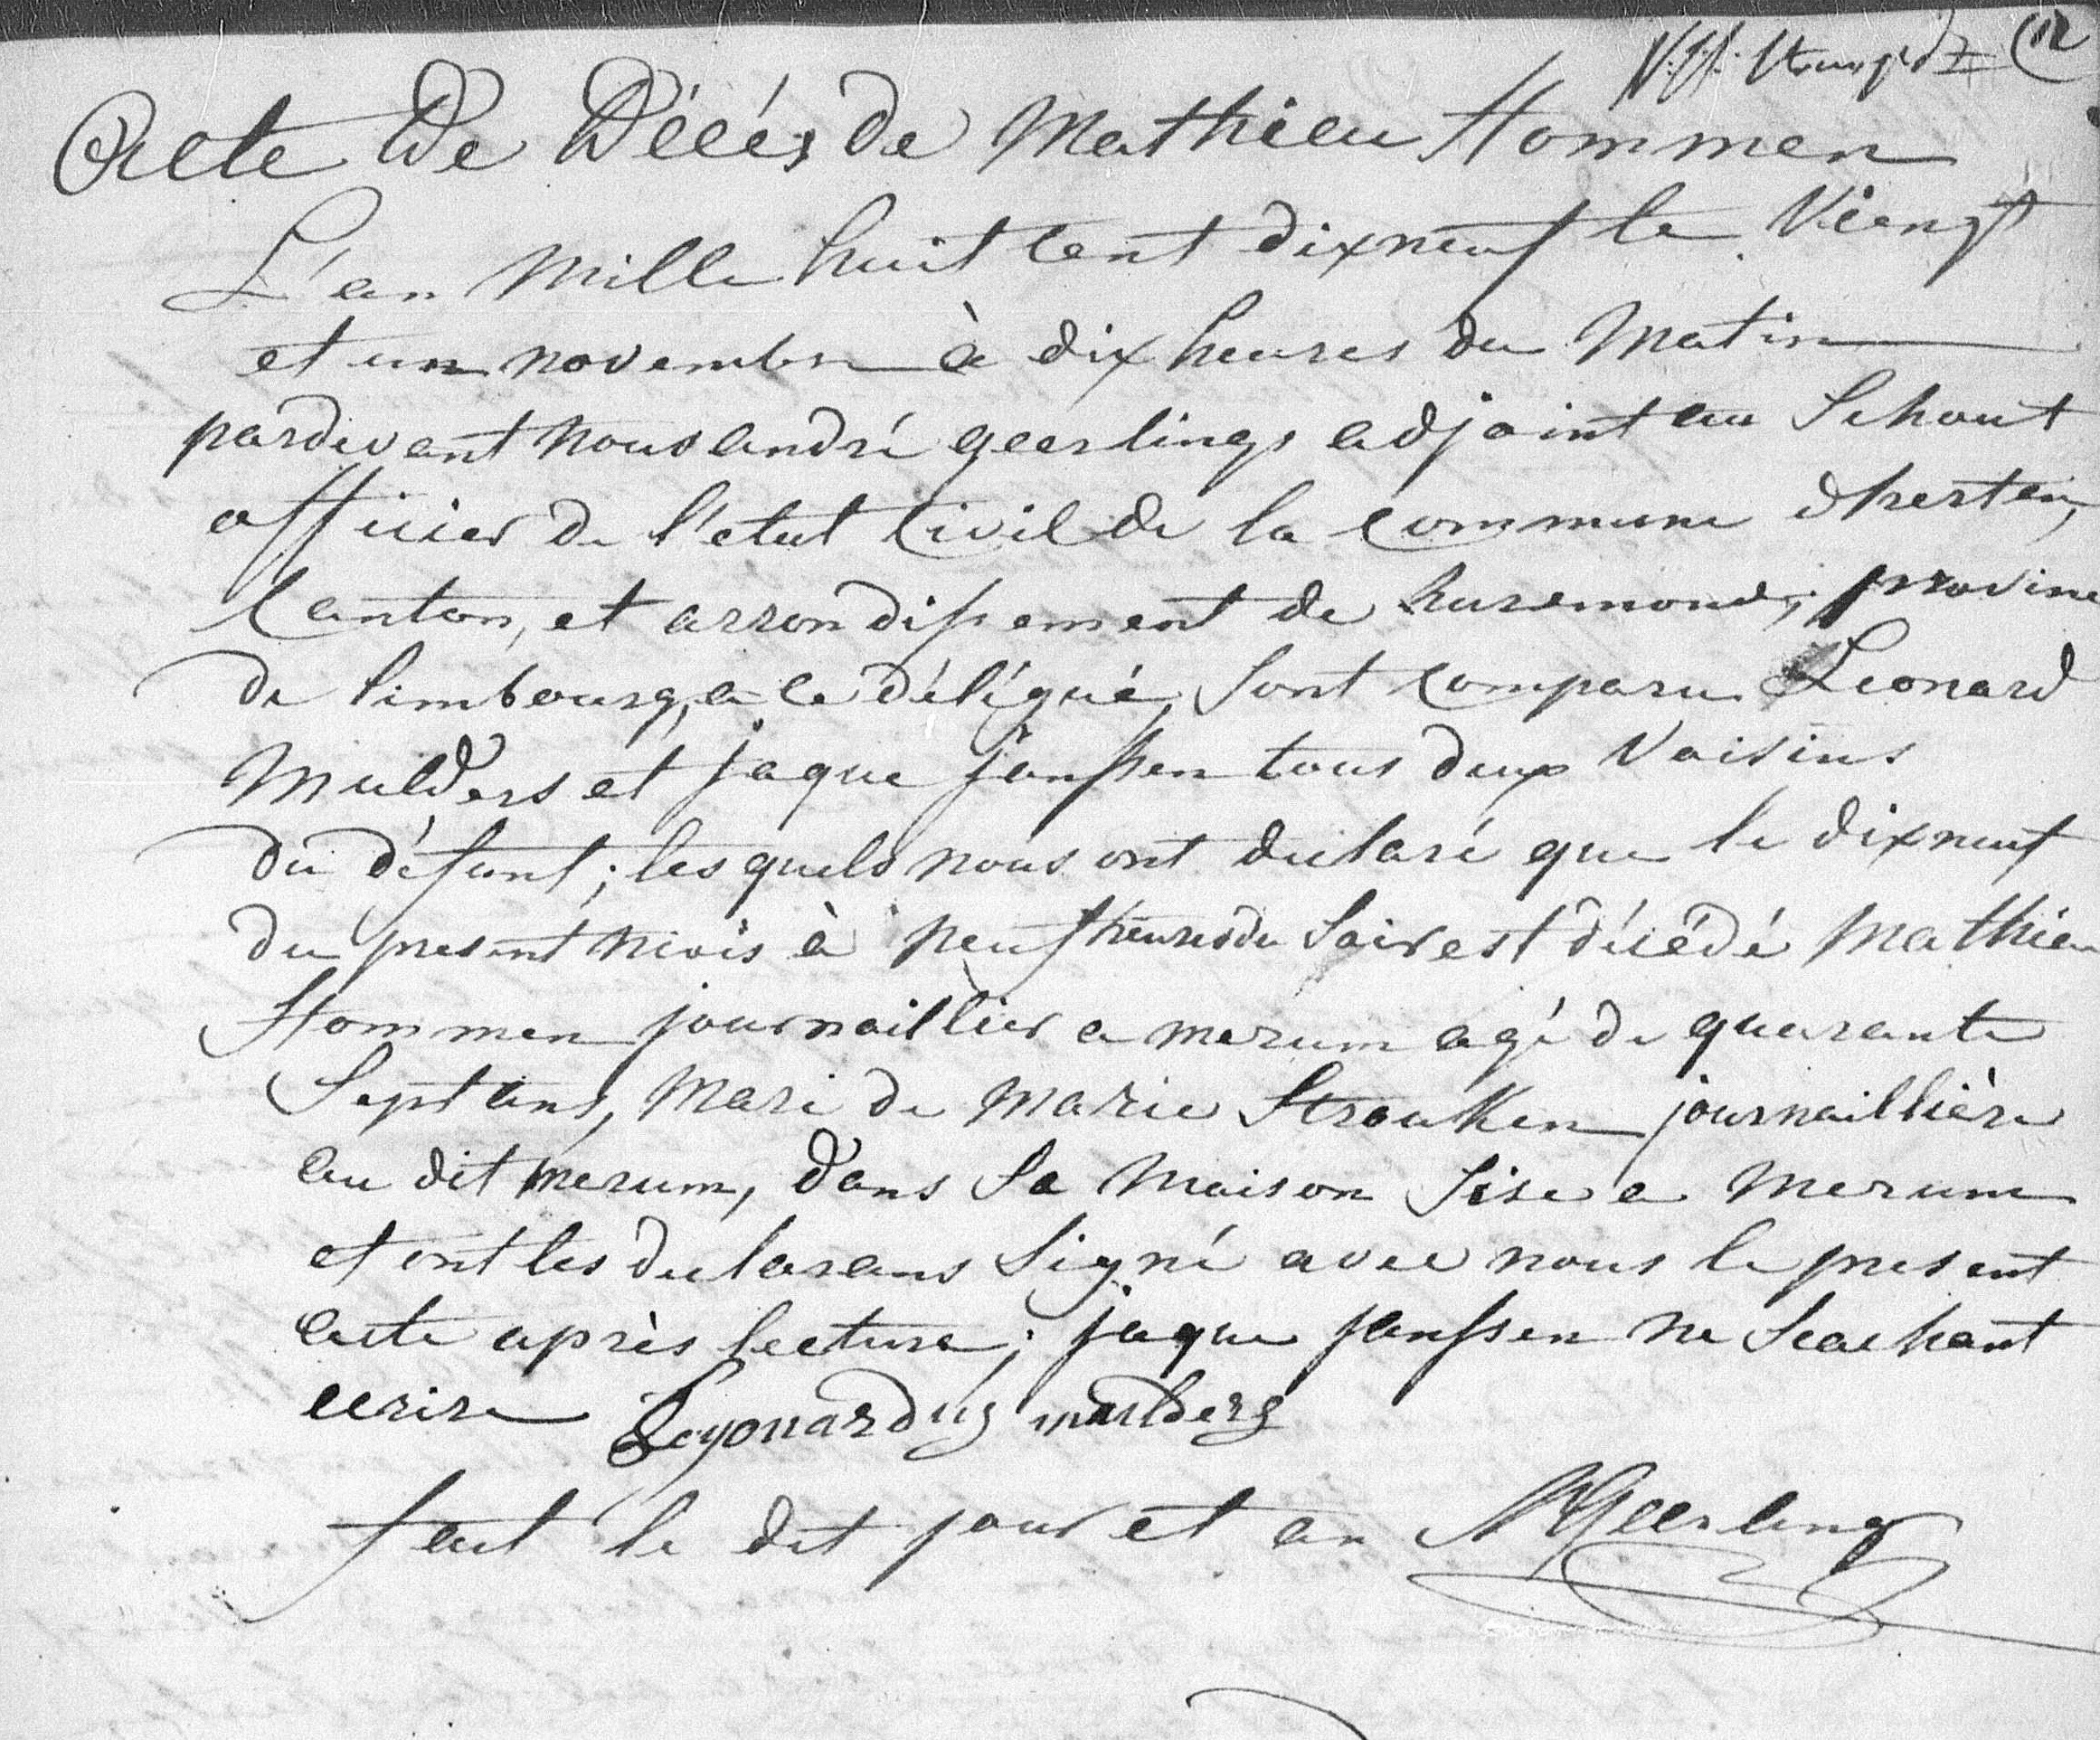 12
Acte De Décés de Mathieu Hommen
L'an mille huit cent dixneuf le Viengt
et un novembre à dix heures du Matin
pardevant nous andré geerlings adjoint au Schout
officier de l'etat Civil de la Commune d'herten,
Canton, et arrondissement de Ruremonde, province
de limbourg, a ce déligué, sont comparu Leonard
Mulders et jaque janssen tous deux Voisins
du défunt; lesquels nous ont declaré que le dixneuf
du present mois à neuf heures du Soir est décédé Mathieu
Hommen journaillier a merum agé de quarante
Sept ans, Mari de Marie Strouken journaillière
au dit merum, dans Sa Maison Sise a Merum
et ont les declarans Signé avec nous le present
acte après lecture; jaque janssen ne Scachant
ecrire Leyonardus mulders
fait le dit jour et an A Geerlings